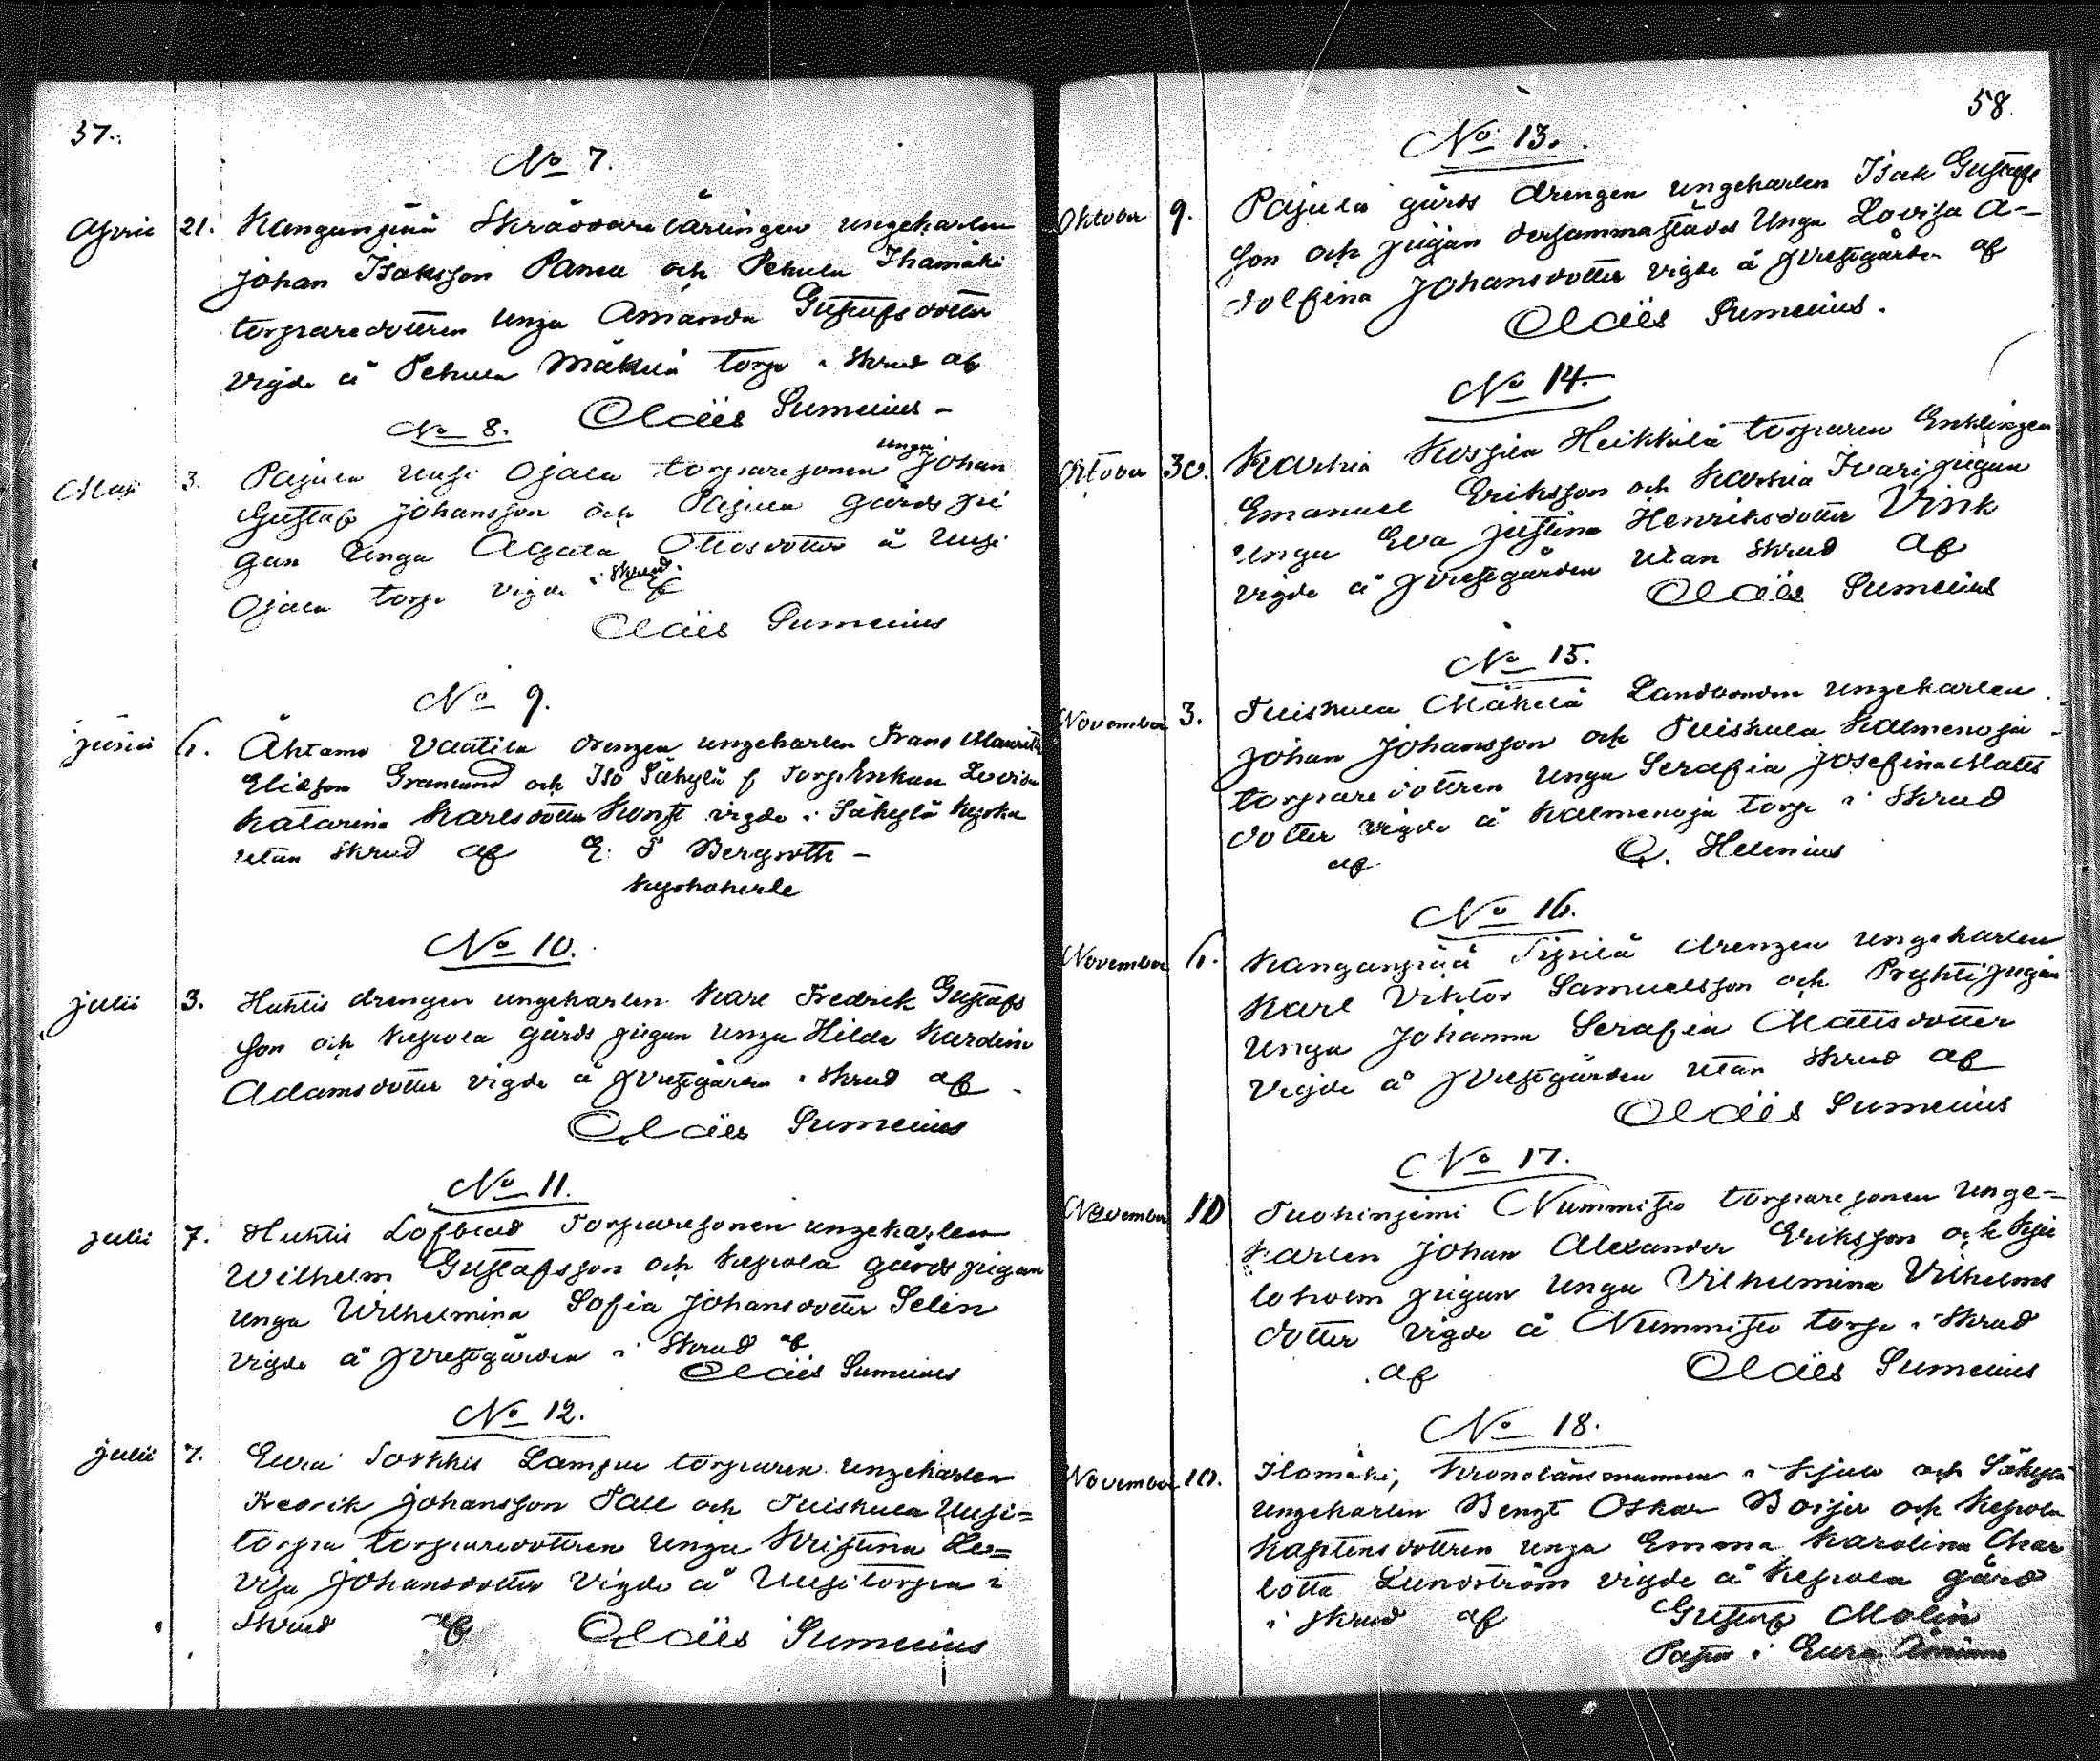 57.
No 7.
April 21. Kanganpää Skräddare lärlingen ungekarlen
Johan Isaksson Panu och Pehula Ihamäki
torparedottren unga Amanda Gustafsdotter
vigde å Pehula Mäkilä torp i skrud af
Olaës Sumelius
No 8.
Maji 3. Pajula Uusi Ojala torparesonen unga Johan
Gustaf Johansson och Pajula gårds pi
gan Unga Agata Ottosdotter å Uusi
Ojala torp vigde i skrud af
Olaës Sumelius
No 9.
Junii 6. Åhtamo Vaatila drengen ungekarlen Frans Maurits
Eliasson Granlund och Iso Säkylä f torp Enkan Lovisa
Katarina Karlsdotter Konst vigde i Säkylä kyrka
utan skrud af E. F Bergroth
kyrkoherde
No 10.
Julii 3. Huhtis drengen ungekarlen Karl Fredrik Gustafs
son och Kepola gårds pigan unga Hilda Karolina
Adamsdotter vigde å prestgården i skrud af
Olaës Sumelius
No 11.
Julii 7. Huhtis Löfblad Torparesonen ungekarlen
Wilhelm Gustafsson och Kepola gårds pigan
unga Wilhelmina Sofia Johansdotter Selin
vigde å prestgården i skrud af
Olaës Sumelius
No 12.
Julii 7. Eura Sorkkis Lampu torparen ungekarlen
Fredrik Johansson Tall och Tuiskula Uusi=
torpa torparedottren unga Kristina Lo=
visa Johansdotter vigde å Uusitorpa i
skrud af Olaës Sumelius
58
No 13.
Oktober 9. Pajula gårds drengen ungekarlen Isak Gustafs
son och pigan dersammastädes Unga Lovisa A-
dolfina Johansdotter vigde å prestgården af
Olaës Sumelius.
No 14.
Oktober 30. Karhia Kospila Heikkilä torparen Enklingen
Emanuel Eriksson och Karhia Ivari pigan
unga Eva Justina Henriksdotter Vink
vigde å prestgården utan skrud af
Olaës Sumelius
No 15.
November 3. Tuiskula Mäkelä Landbonden ungekarlen
Johan Johansson och Tuiskula Kalmenoja
torparedottren unga Serafia Josefina Matts
dotter vigde å Kalmenoja torp i skrud
af Q. Helenius
No 16.
November 6. Kanganpää Pipilä drengen ungekarlen
Karl Viktor Samuelsson och Pryhti pigan
unga Johanna Serafia Mattsdotter
vigde å prestgården utan skrud af
Olaës Sumelius
No 17.
November 10 Tuohiniemi Nummisto torparesonen unge=
karlen Johan Alexander Eriksson och Kju
loholm pigan unga Vilhelmina Vilhelms
dotter vigde å Nummisto torp i skrud
af Olaës Sumelius
No 18.
November 10. Ilomäki, Kronolänsmannen i Kjulo och Säkylä
ungekarlen Bengt Oskar Boijer och Kepola
Kaptensdottren unga Emma Karolina Char
lotta Lundström vigde å Kepola gård
i skrud af Gustaf Molin
Pastor i Eura